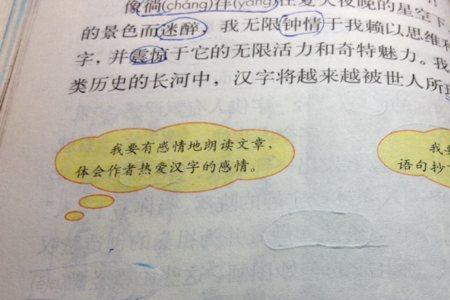 像徜(cháng)徉(yáng)在夏天夜晚的星空下
的景色而迷醉，我无限钟情于我赖以思维和
字，并震惊于它的无限活力和奇特魅力。我
类历史的长河中，汉字将越来越被世人所
我要有感情地朗读文章，
体会作者热爱汉字的感情。
我要
语句抄下